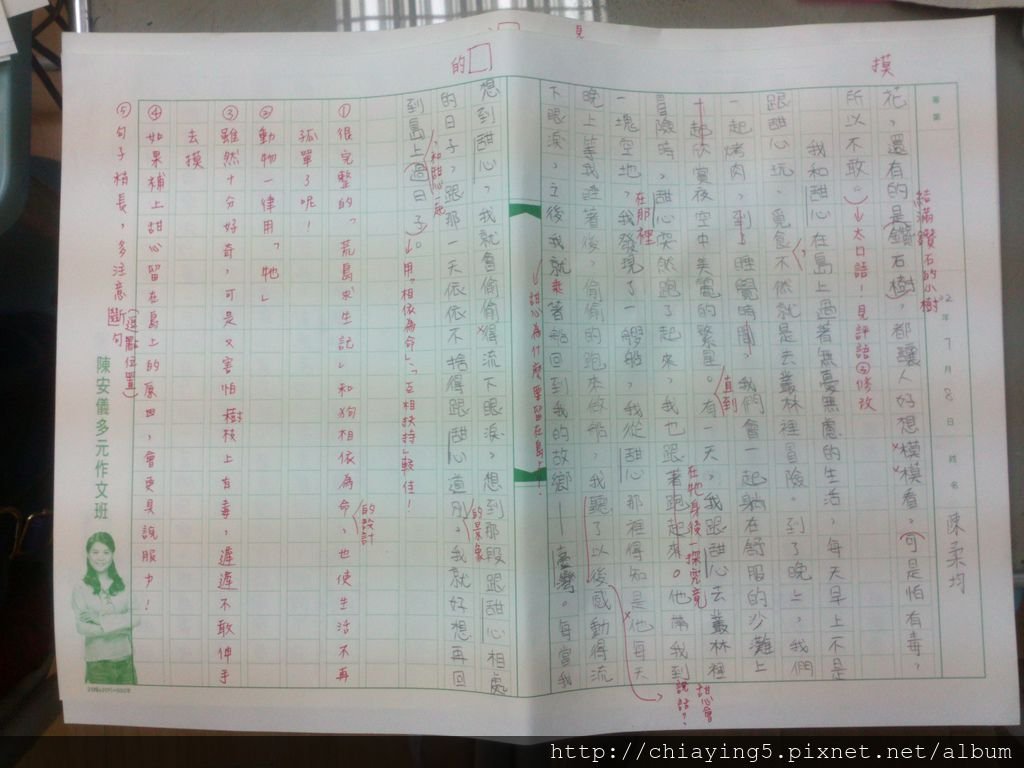 摸
的
花，還有的是鑽石樹，都讓人好想模模看。可是怕有毒，
所以不敢。
結滿鑽石的小樹
太口語！見評語③修改
我和甜心在島上過著無憂無慮的生活，每天早上不是
跟甜心玩、覓食，不然就是去叢林裡冒險。到了晚上，我們
一起烤肉，到上睡覺時間，我們會一起躺在舒服的沙灘上
直到
一起欣賞夜空中美麗的繁星。有一天，我跟甜心去叢林裡
冒險時，甜心突然跑了起來，我也跟著跑起來。他帶我到
在牠身後一探究竟
一塊空地，我發現了一艘船，我從甜心那裡得知是他每天
在那裡
甜心會說話？
晚上等我睡著後，偷偷的跑來做船，我聽了以後感動得流
下眼淚，之後我就乘著船回到我的故鄉——臺灣。每當我
甜心為什麼要留在島上？
想到甜心，我就會偷偷得流下眼淚，想到那段跟甜心相處
的日子，跟那一天依依不捨得跟甜心道別。我就好想再回
的景象
到島上過日子。
，和甜心一起
用「相依為命」、「互相扶持」較佳！
①很完整的「荒島求生記」，和狗相依為命，也使生活不再
的設計
孤單了呢！
②動物一律用「牠」
③雖然十分好奇，可是又害怕樹枝上有毒，遲遲不敢伸手
去摸
④如果補上甜心留在島上的原因，會更具說服力！
⑤句子稍長，多注意斷句
(逗點位置)
年7月8日
姓名 陳柔均
陳安儀多元作文班
http://chiaying5.pixnet.net/album